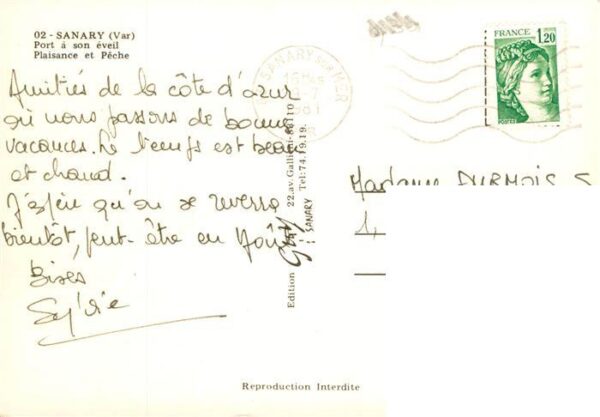 02 - SANARY (Var)
Port à son éveil
Plaisance et Pêche
Amitiés de la côte d'azur
où nous passons de bonnes
vacances. Le temps est beau
et chaud.
J'espère qu'on se reverra
bientôt, peut-être en Août
Bises
Sylvie
Reproduction Interdite
Edition GUY
22,av. Gallieni-83110
SANARY Tel: 74.19.19.
SANARY SUR MER
1981
FRANCE
1,20
Madame
1,